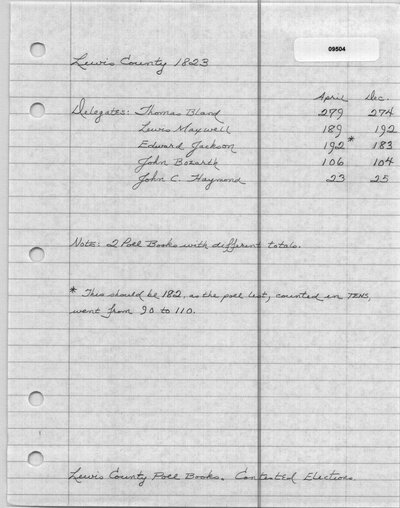 09504
Lewis County 1823
April Dec.
Delegates: Thomas Bland 279 274
Lewis Maxwell 189 192
Edward Jackson 192* 183
John Bozarth 106 104
John C. Haymond 23 25
Note: 2 Poll Books with different totals.
* This should be 182, as the poll list, counted in TENS,
went from 90 to 110.
Lewis County Poll Books. Contested Elections.